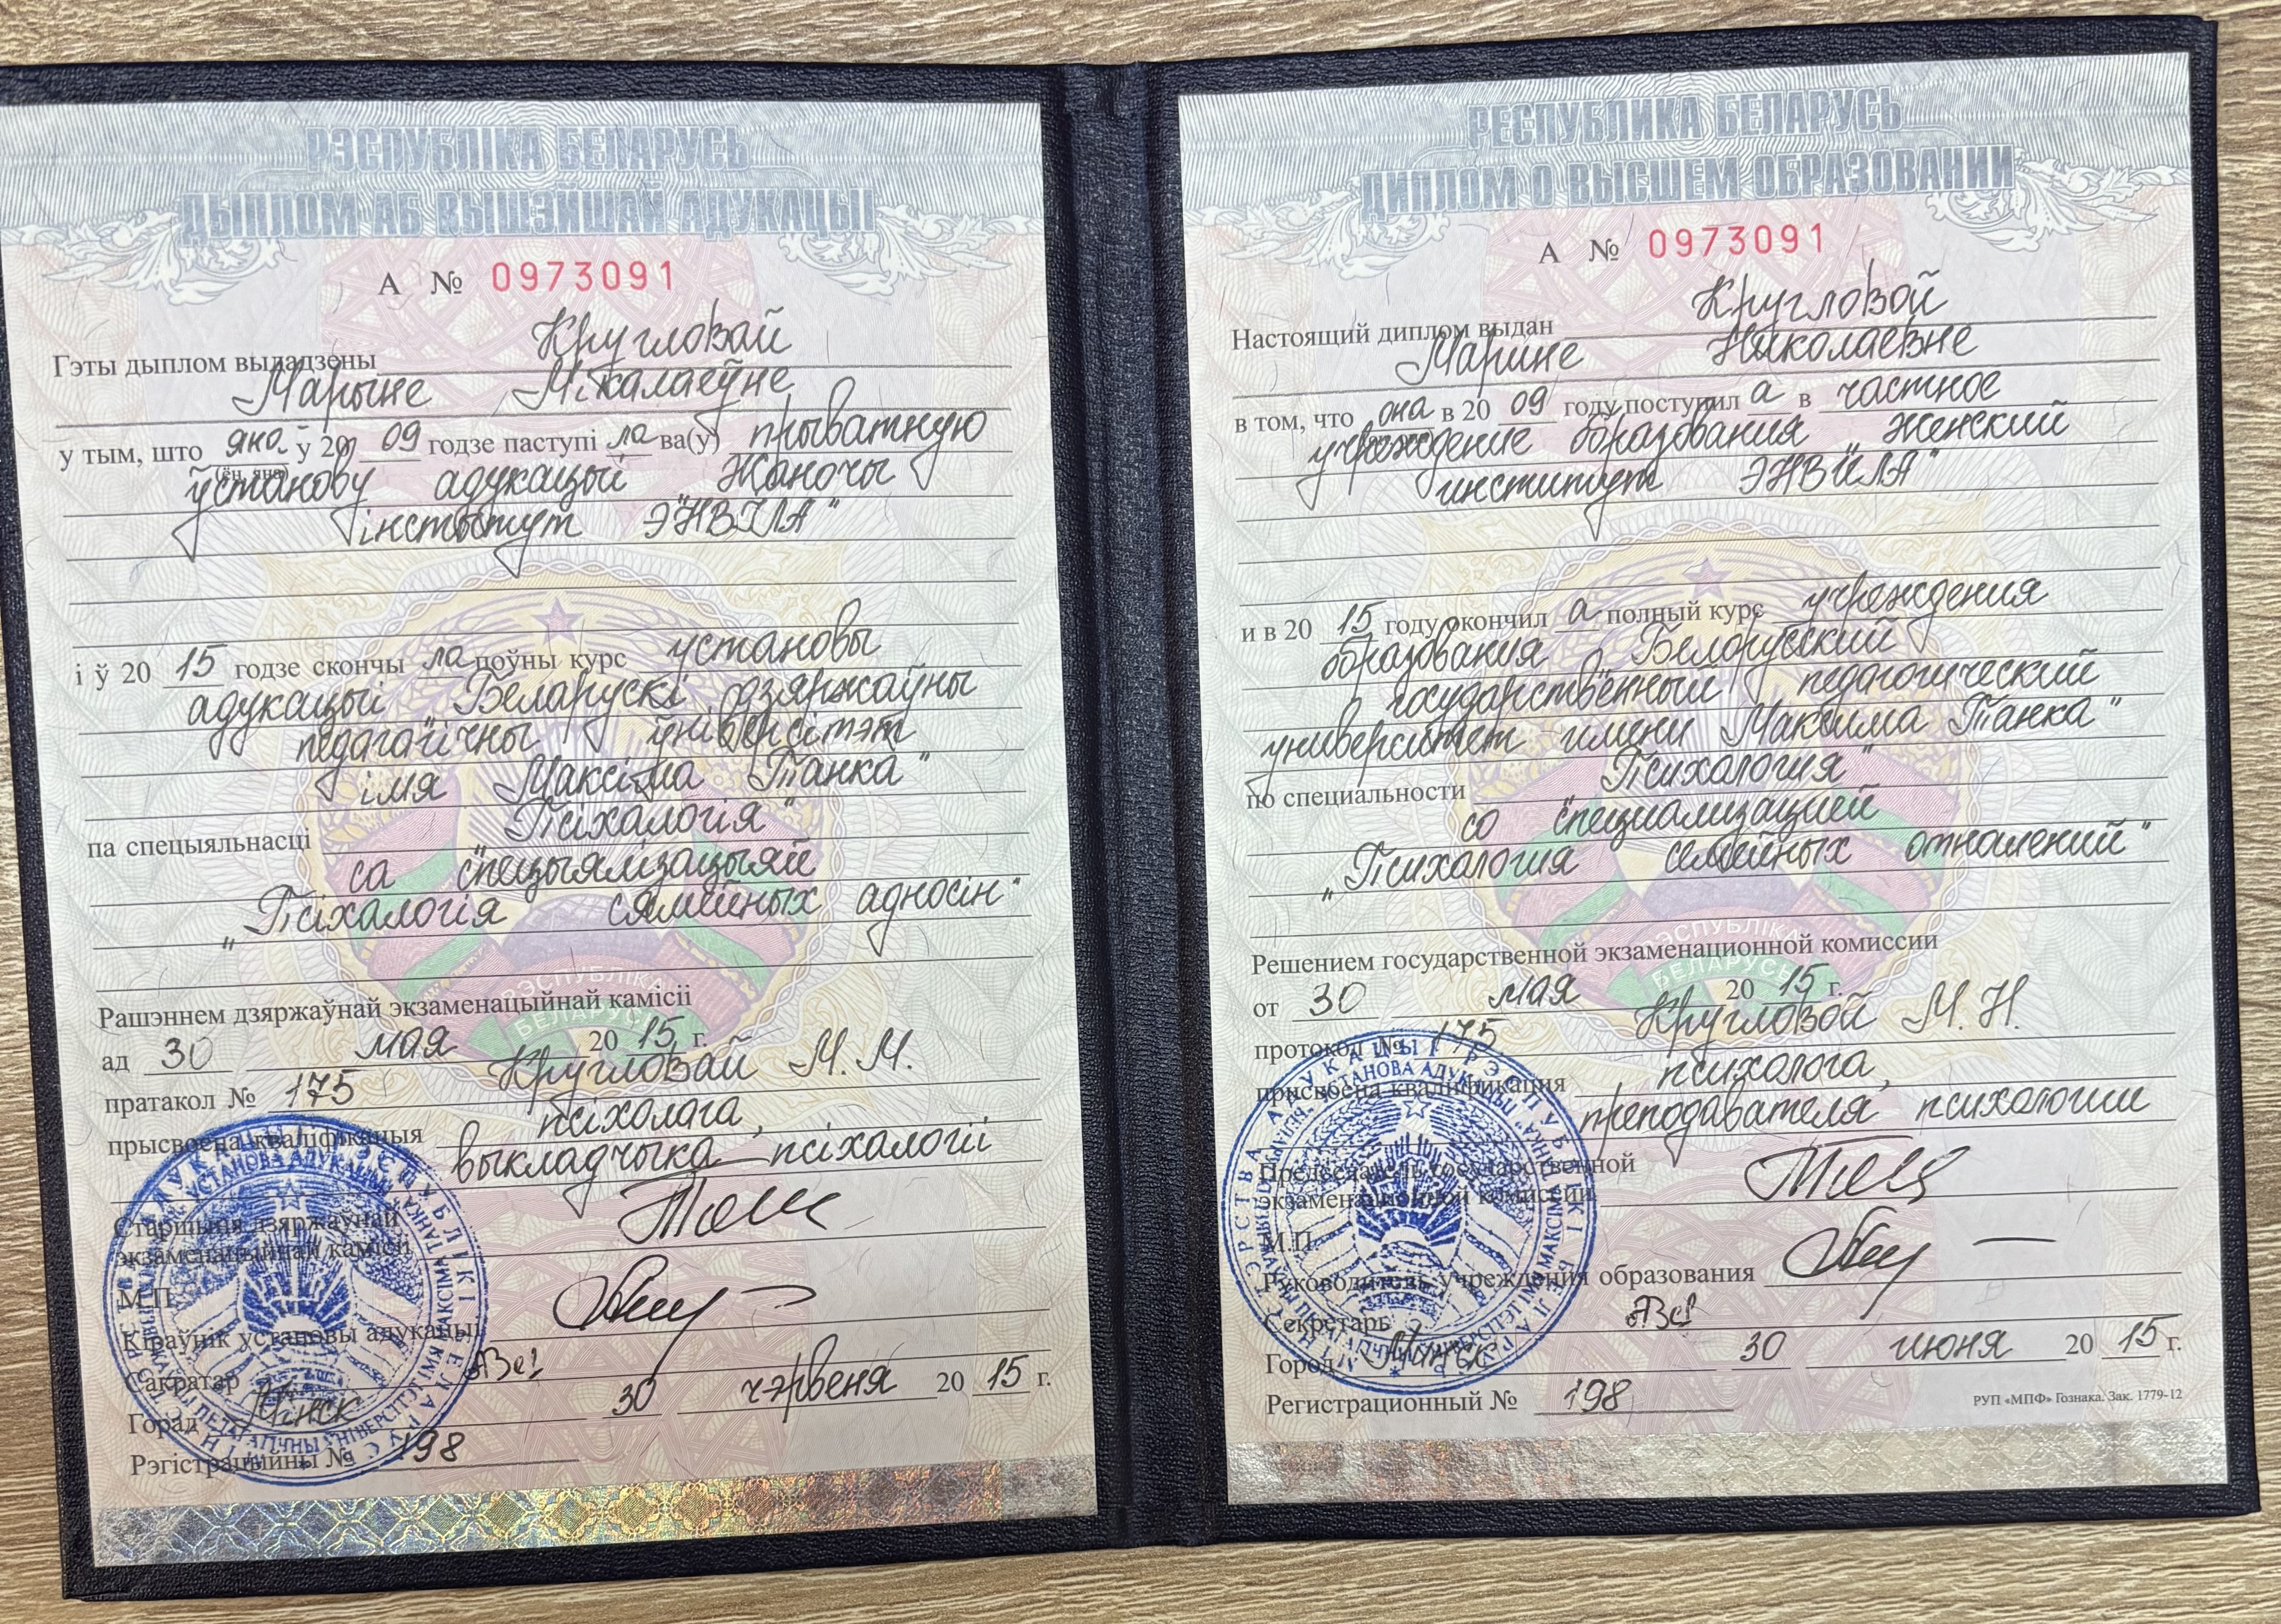 РЭСПУБЛІКА БЕЛАРУСЬ
ДЫПЛОМ АБ ВЫШЭЙШАЙ АДУКАЦЫІ
А № 0973091
Кругловай
Гэты дыплом выдадзены
Марыне Мікалаеўне
у тым, што яна ў 20 09 годзе паступі ла ва(у) прыватную
(ён, яна)
ўстанову адукацыі "Жаночы
інстытут ЭНВІЛА"
і ў 20 15 годзе скончы ла поўны курс установы
адукацыі "Беларускі дзяржаўны
педагагічны ўніверсітэт
імя Максіма Танка"
па спецыяльнасці "Псіхалогія"
са спецыялізацыяй
"Псіхалогія сямейных адносін"
Рашэннем дзяржаўнай экзаменацыйнай камісіі
ад 30 мая 20 15 г.
пратакол № 175 Кругловай М. М.
прысвоена кваліфікацыя псіхолага,
выкладчыка псіхалогіі
Старшыня дзяржаўнай
экзаменацыйнай камісіі
М.П.
Кіраўнік установы адукацыі
Сакратар
Горад Мінск 30 чэрвеня 20 15 г.
Рэгістрацыйны № 198
РЕСПУБЛИКА БЕЛАРУСЬ
ДИПЛОМ О ВЫСШЕМ ОБРАЗОВАНИИ
А № 0973091
Кругловой
Настоящий диплом выдан
Марине Николаевне
в том, что она в 20 09 году поступил а в частное
учреждение образования "Женский
институт ЭНВИЛА"
и в 20 15 году окончил а полный курс учреждения
образования "Белорусский
государственный педагогический
университет имени Максима Танка"
по специальности "Психология"
со специализацией
"Психология семейных отношений"
Решением государственной экзаменационной комиссии
от 30 мая 20 15 г.
протокол № 175 Кругловой М. Н.
присвоена квалификация психолога,
преподавателя психологии
Председатель государственной
экзаменационной комиссии
М.П.
Руководитель учреждения образования
Секретарь
Город Минск 30 июня 20 15 г.
Регистрационный № 198
РУП «МПФ» Гознака. Зак. 1779-12
РЭСПУБЛІКА
БЕЛАРУСЬ
РЭСПУБЛІКА
БЕЛАРУСЬ